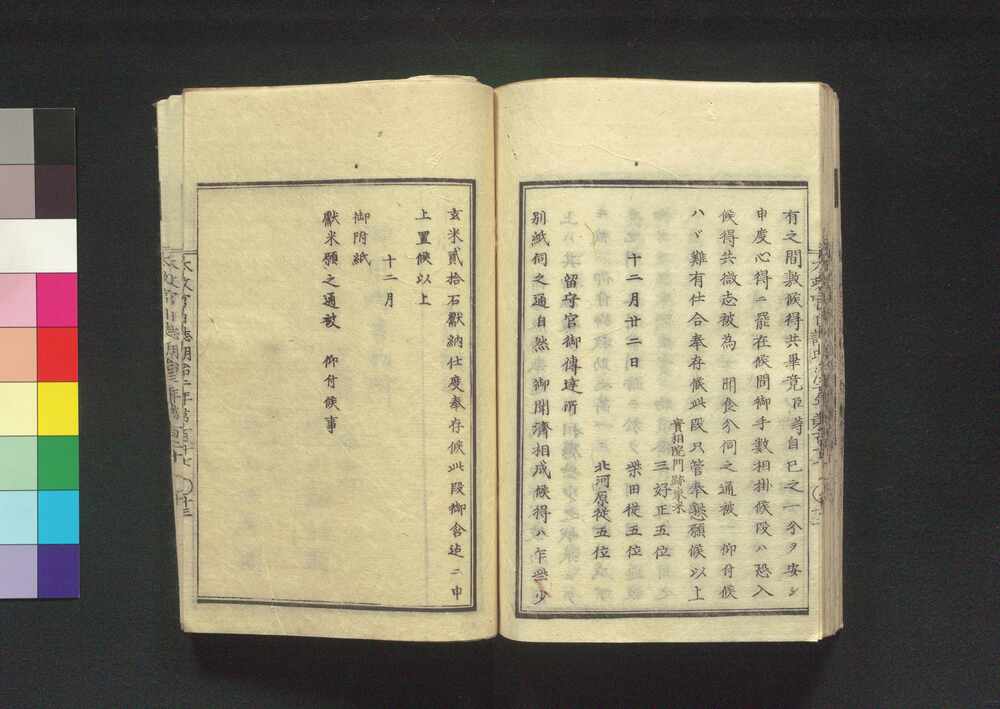 有之間敷候得共畢竟臣等自已之一分ヲ安シ
申度心得ニ罷在候間御手数相掛候段ハ恐入
候得共微志被為　聞食分伺之通被　仰付候
ハヾ難有仕合奉存候此段只管奉懇願候以上
實相院門跡家来
三好正五位
十二月廿二日　栗田従五位
北河原従五位
留守官御傳達所
別紙伺之通自然御聞濟相成候得ハ乍些少
玄米貳拾石獻納仕度奉存候此段御舎迠ニ申
上置候以上
十二月
御附紙
獻米願之通被　仰付候事